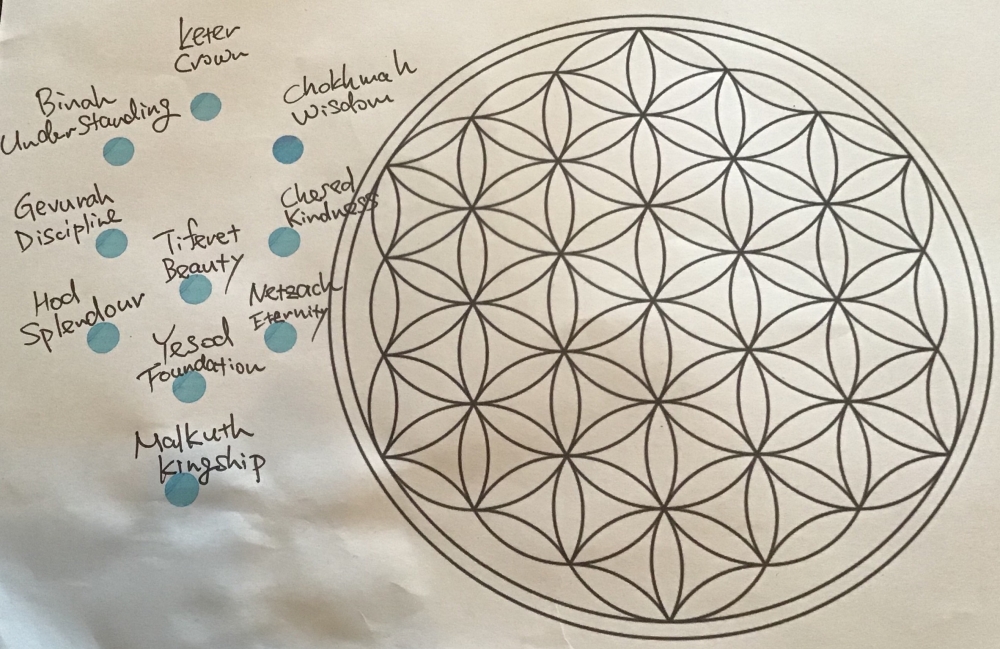 Keter
Crown
Chokhmah
Wisdom
Binah
Understanding
Gevurah
Discipline
Chesed
Kindness
Tiferet
Beauty
Hod
Splendour
Netzach
Eternity
Yesod
Foundation
Malkuth
Kingship